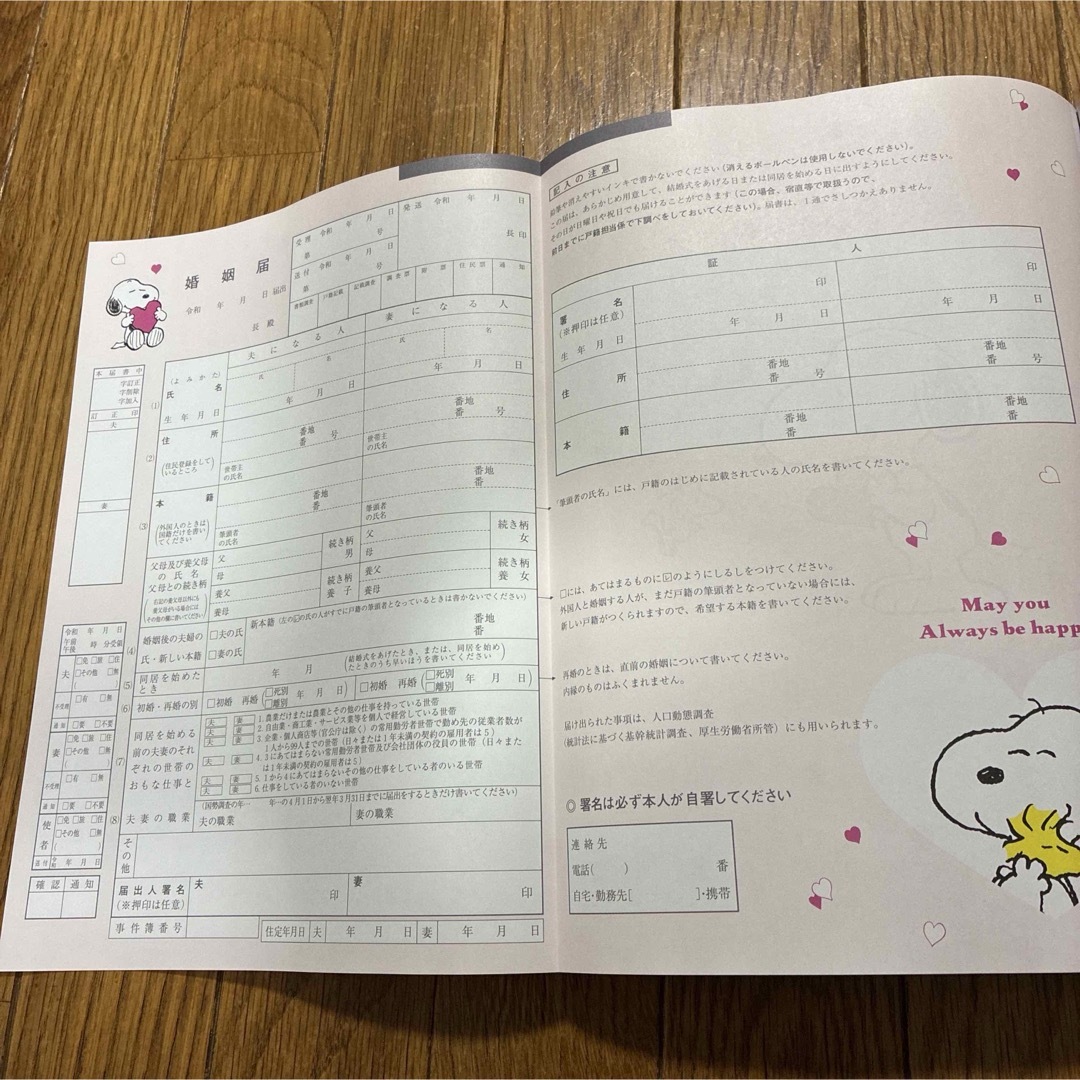 婚姻届
令和 年 月 日 届出
長 殿
受理 令和 年 月 日
第 号
発送 令和 年 月 日
送付 令和 年 月 日
第 号
長印
書類調査 戸籍記載 記載調査 調査票 附票 住民票 通知
夫になる人 妻になる人
(よみかた)
氏 名 氏 名
(1) 氏名
生年月日 年 月 日 年 月 日
(2) 住所
(住民登録をしているところ)
番地
番 号
番地
番 号
世帯主の氏名
世帯主の氏名
(3) 本籍
(外国人のときは国籍だけを書いてください)
番地
番
番地
番
筆頭者の氏名
筆頭者の氏名
父母及び養父母の氏名
父母との続き柄
(右記の養父母以外にも養父母がいる場合にはその他の欄に書いてください)
父 続き柄 父 続き柄
母 男 母 女
養父 続き柄 養父 続き柄
養母 養子 養母 養女
(4) 婚姻後の夫婦の氏・新しい本籍
□夫の氏
□妻の氏
新本籍(左の☑の氏の人がすでに戸籍の筆頭者となっているときは書かないでください)
番地
番
(5) 同居を始めたとき
年 月
(結婚式をあげたとき、または、同居を始めたときのうち早いほうを書いてください)
(6) 初婚・再婚の別
□初婚 再婚(□死別 □離別 年 月 日) □初婚 再婚(□死別 □離別 年 月 日)
(7) 同居を始める前の夫妻のそれぞれの世帯のおもな仕事と
夫 妻 1.農業だけまたは農業とその他の仕事を持っている世帯
夫 妻 2.自由業・商工業・サービス業等を個人で経営している世帯
夫 妻 3.企業・個人商店等(官公庁は除く)の常用勤労者世帯で勤め先の従業者数が
1人から99人までの世帯(日々または1年未満の契約の雇用者は5)
夫 妻 4.3にあてはまらない常用勤労者世帯及び会社団体の役員の世帯(日々または1年未満の契約の雇用者は5)
夫 妻 5.1から4にあてはまらないその他の仕事をしている者のいる世帯
夫 妻 6.仕事をしている者のいない世帯
(8) 夫妻の職業
(国勢調査の年…　年…の4月1日から翌年3月31日までに届出をするときだけ書いてください)
夫の職業 妻の職業
その他
届出人署名
(※押印は任意)
夫 印 妻 印
事件簿番号
住定年月日 夫 年 月 日 妻 年 月 日
本届書中
字訂正
字削除
字加入
訂正印
夫
妻
令和 年 月 日
午前
午後 時 分受領
夫 □免 □旅 □住
□その他 □無
( )
不受理 □有 □無
通知 □要 □不要
妻 □免 □旅 □住
□その他 □無
( )
不受理 □有 □無
通知 □要 □不要
使者 □免 □旅 □住
□その他 □無
( )
送付 令和 年 月 日
確認 通知
記入の注意
鉛筆や消えやすいインキで書かないでください(消えるボールペンは使用しないでください)。
この届は、あらかじめ用意して、結婚式をあげる日または同居を始める日に出すようにしてください。
その日が日曜日や祝日でも届けることができます(この場合、宿直等で取扱うので、
前日までに戸籍担当係で下調べをしておいてください)。届書は、1通でさしつかえありません。
証人
署名
(※押印は任意)
印 印
生年月日 年 月 日 年 月 日
住所
番地
番 号
番地
番 号
本籍
番地
番
番地
番
「筆頭者の氏名」には、戸籍のはじめに記載されている人の氏名を書いてください。
□には、あてはまるものに☑のようにしるしをつけてください。
外国人と婚姻する人が、まだ戸籍の筆頭者となっていない場合には、
新しい戸籍がつくられますので、希望する本籍を書いてください。
再婚のときは、直前の婚姻について書いてください。
内縁のものはふくまれません。
届け出られた事項は、人口動態調査
(統計法に基づく基幹統計調査、厚生労働省所管)にも用いられます。
◎署名は必ず本人が自署してください
連絡先
電話( ) 番
自宅・勤務先[ ]・携帯
May you
Always be happ